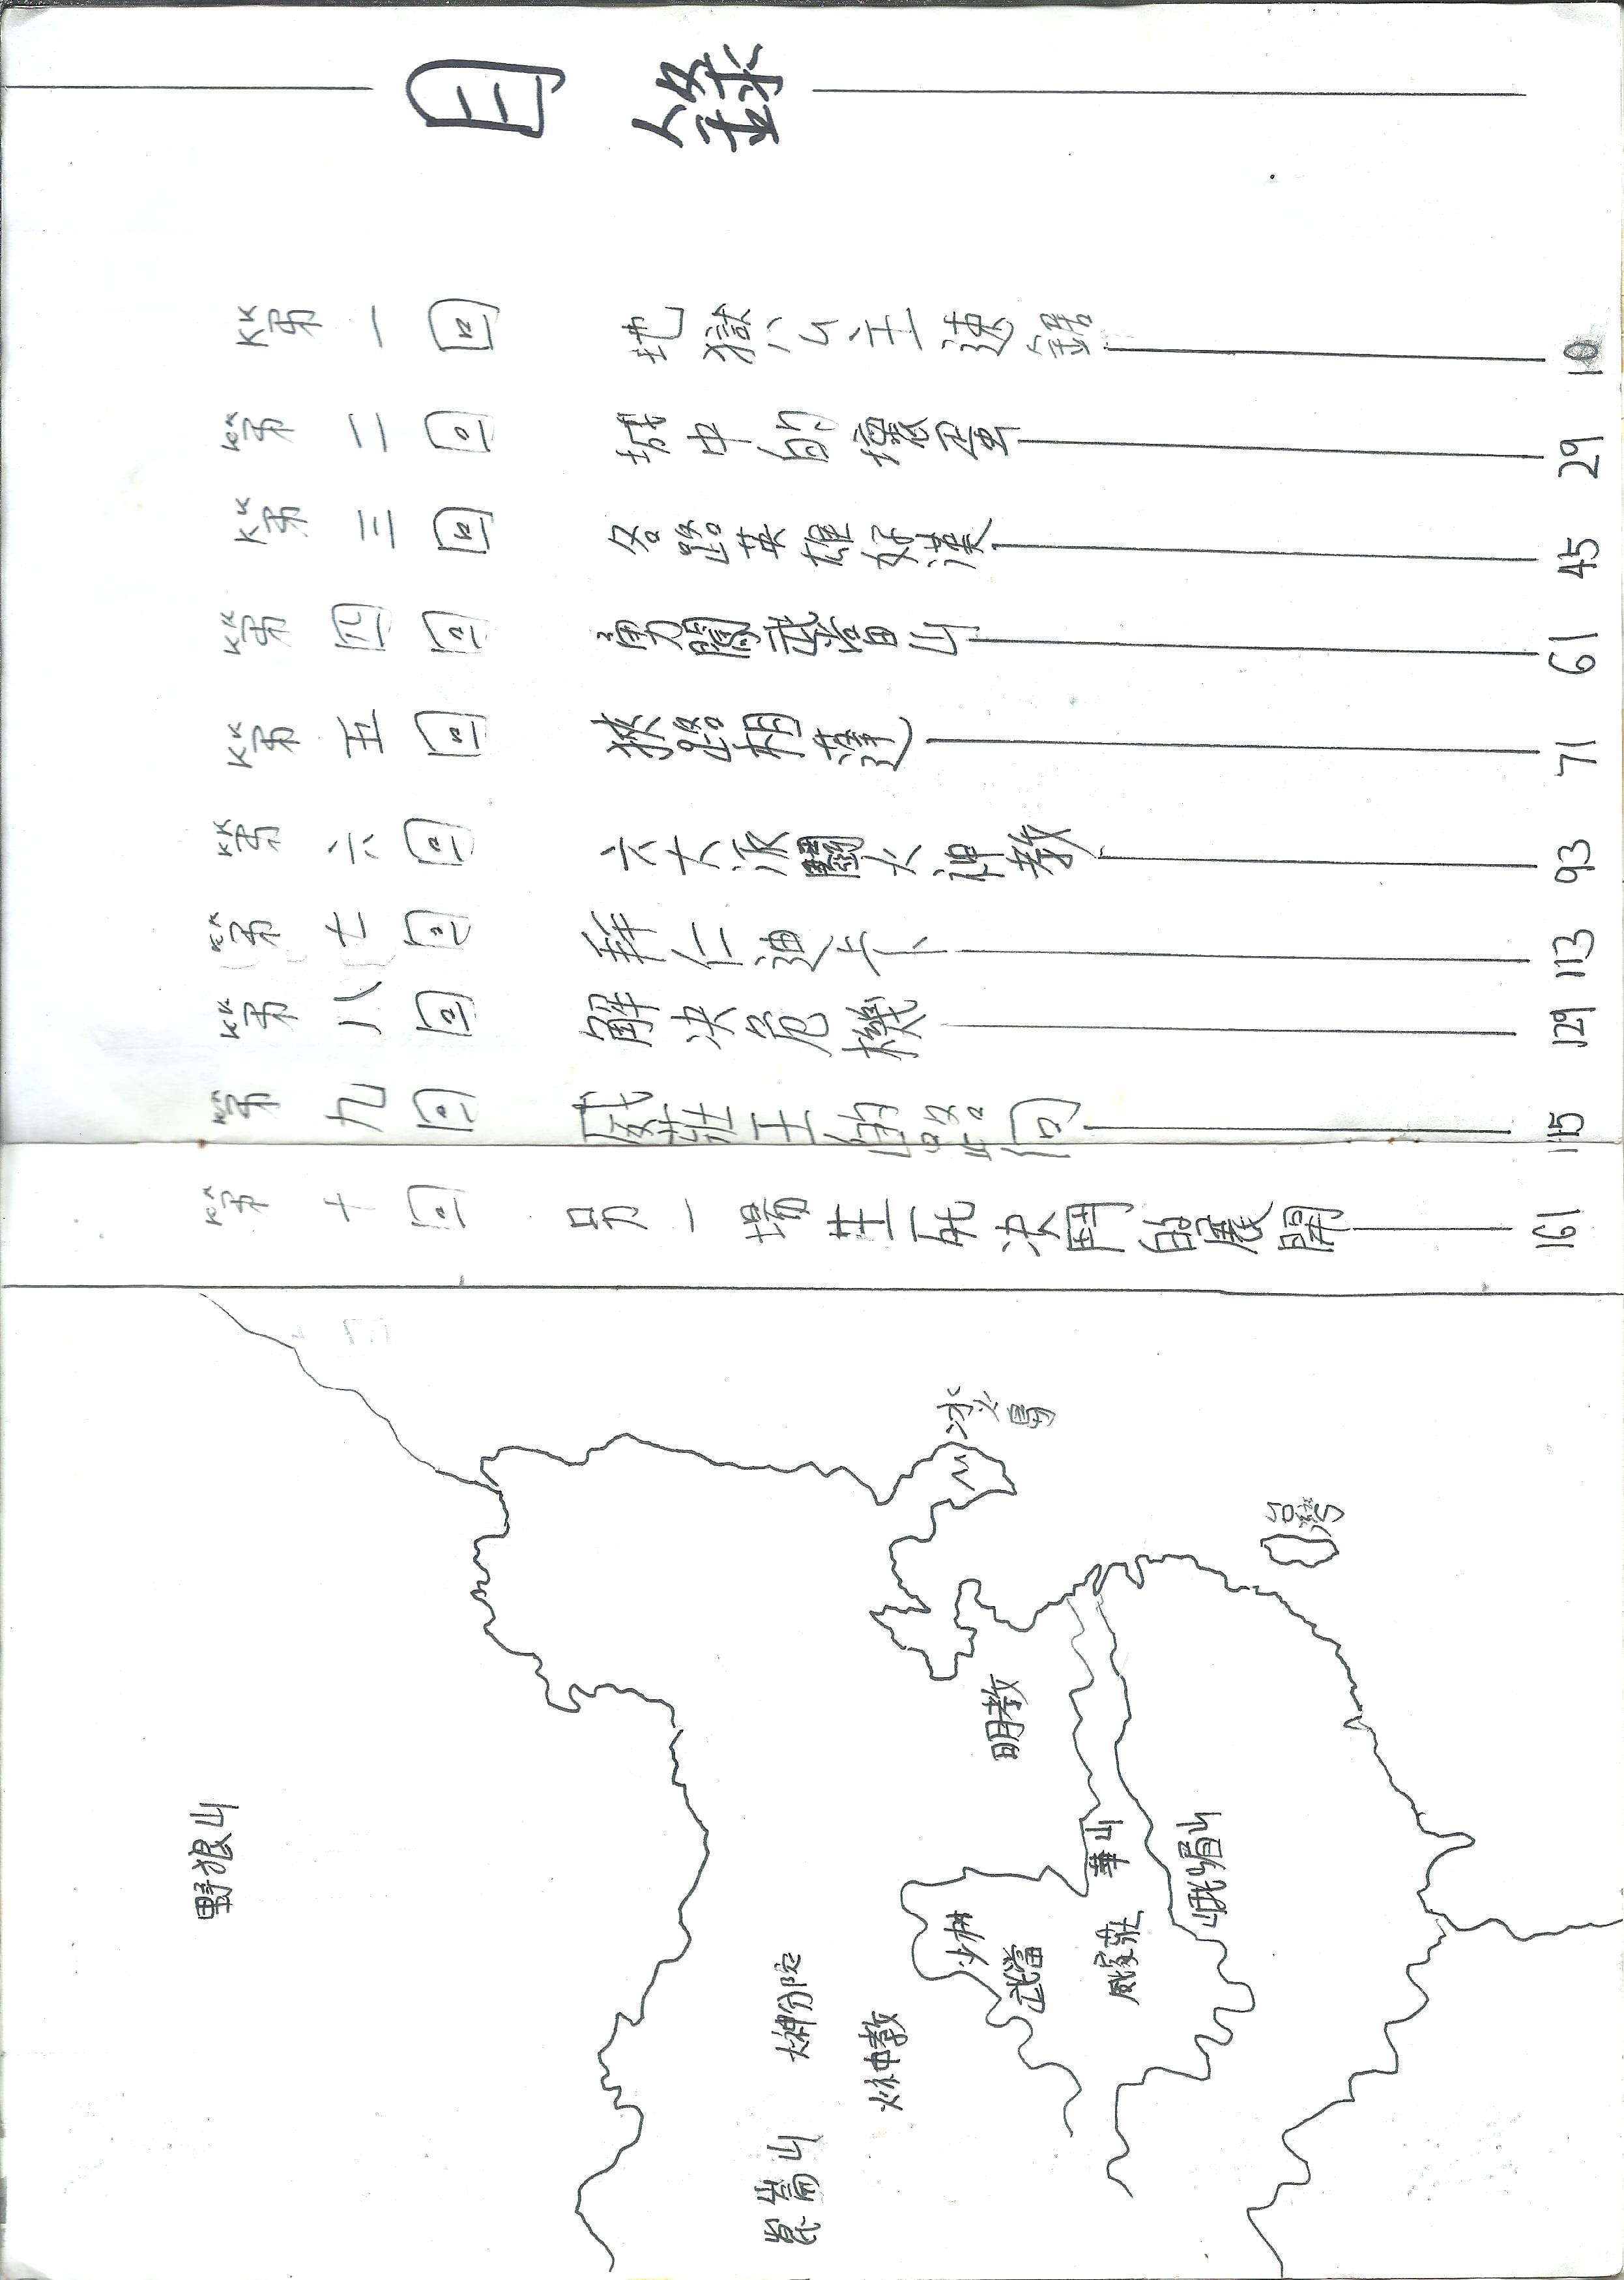 目錄
第一回 地獄公主速錯 10
第二回 城中的壞蛋 29
第三回 各路英雄好漢 45
第四回 勇闖武當山 61
第五回 狹路相逢 71
第六回 六大派鬪火神教 93
第七回 拜仁迪卡 113
第八回 解決危機 129
第九回 威莊主的路向 115
第十回 另一場生死決鬥的展開 161
冰火島
台灣
明教
野狼山
華山
峨嵋山
少林
武當
威家莊
火神分院
火神教
嵩山